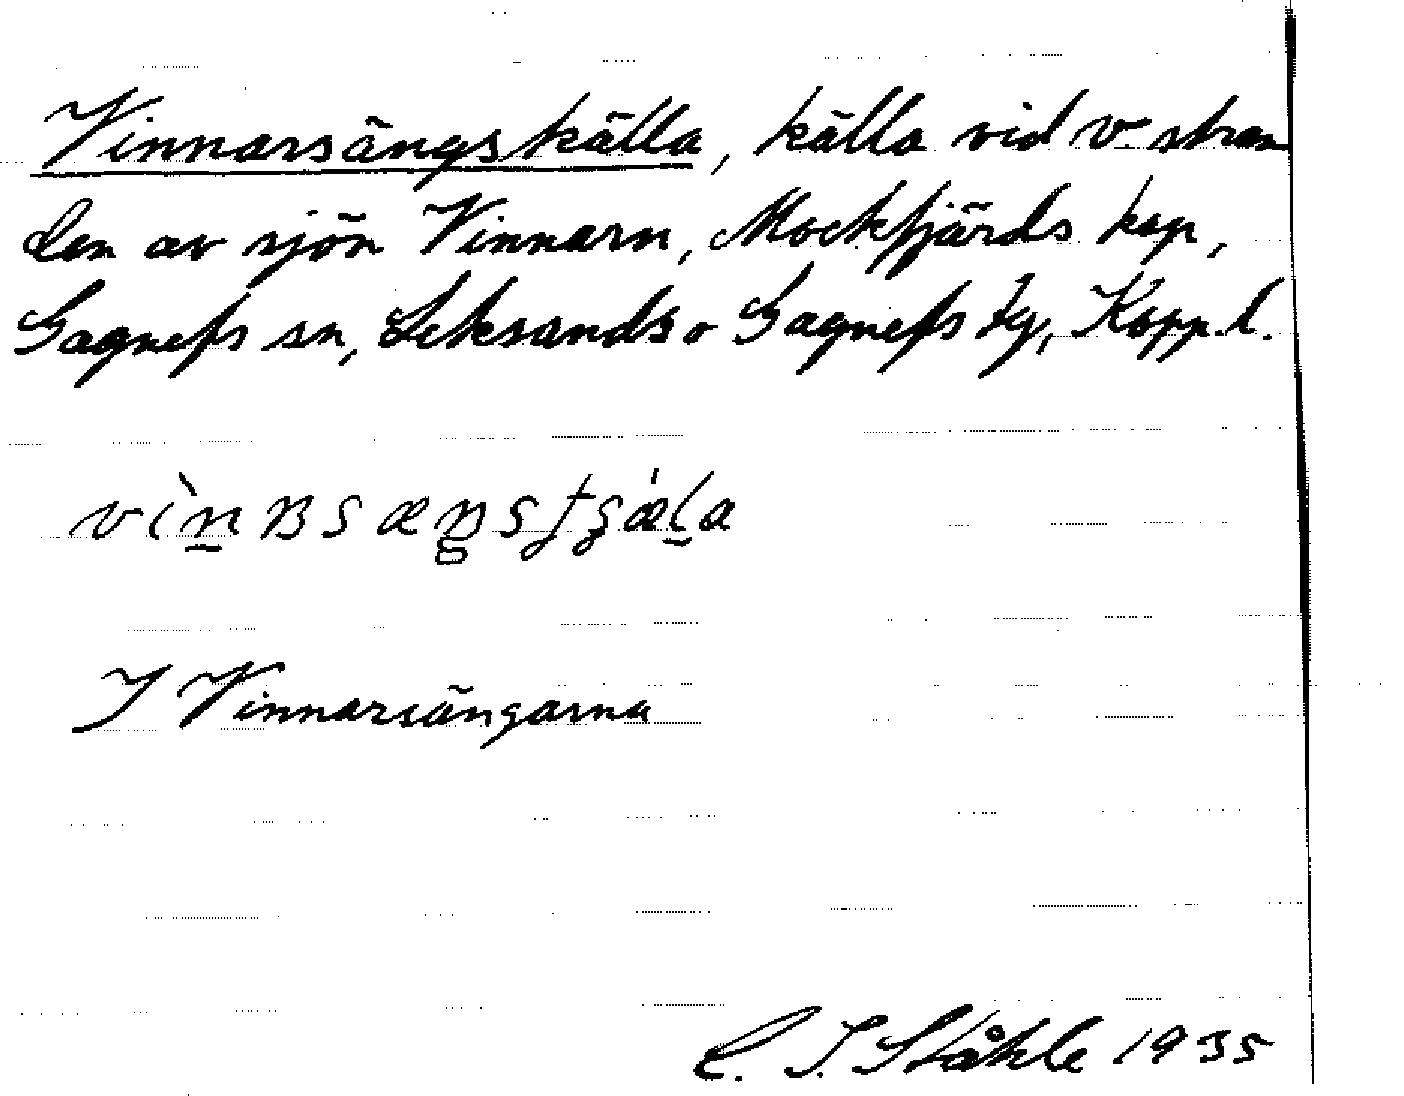 Vinnarsängskälla, källa vid v. stran
den av sjön Vinnarn, Mockfjärds kap,
Gagnefs sn, Leksands o Gagnefs tg, Kopp. l.
I Vinnarsängarna
C. I. Ståhle 1935